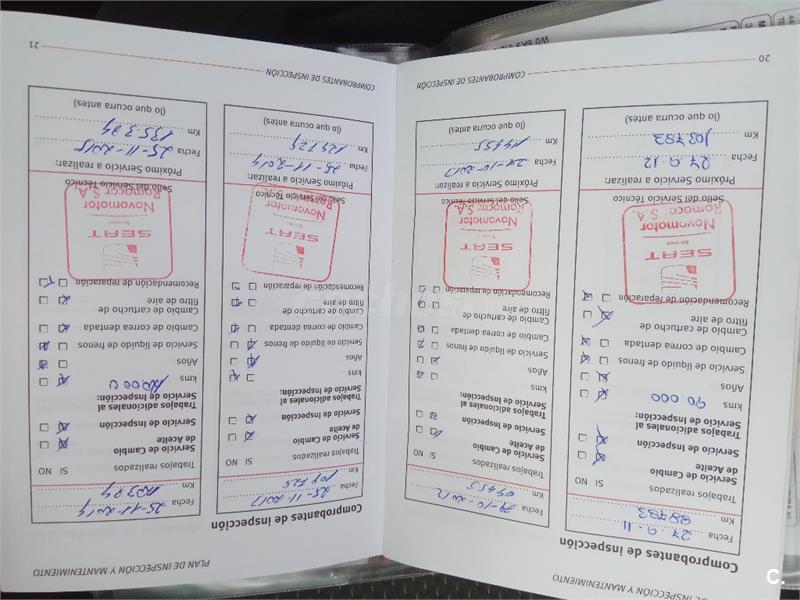 DE INSPECCIÓN Y MANTENIMIENTO
Comprobantes de inspección
Fecha 27.9.11
Km 88783
Trabajos realizados SI NO
Servicio de Cambio
de Aceite
Servicio de Inspección
Trabajos adicionales al
Servicio de Inspección:
kms 90 000
Años
Servicio de líquido de frenos
Cambio de correa dentada
Cambio de cartucho de
filtro de aire
Recomendación de reparación
Sello del Servicio Técnico
SEAT
Servicio
Novomotor
Romacar S.A.
Próximo Servicio a realizar:
Fecha 27.9.12
Km 103783
(lo que ocurra antes)
Fecha 24-10-2012
Km 99455
Trabajos realizados SI NO
Servicio de Cambio
de Aceite
Servicio de Inspección
Trabajos adicionales al
Servicio de Inspección:
kms
Años
Servicio de líquido de frenos
Cambio de correa dentada
Cambio de cartucho de
filtro de aire
Recomendación de reparación
Sello del Servicio Técnico
SEAT
Servicio
Novomotor
Romacar S.A.
Próximo Servicio a realizar:
Fecha 24-10-2013
Km 114455
(lo que ocurra antes)
20
COMPROBANTES DE INSPECCIÓN
PLAN DE INSPECCIÓN Y MANTENIMIENTO
Comprobantes de inspección
Fecha 25-11-2013
Km
Trabajos realizados SI NO
Servicio de Cambio
de Aceite
Servicio de Inspección
Trabajos adicionales al
Servicio de Inspección:
kms
Años
Servicio de líquido de frenos
Cambio de correa dentada
Cambio de cartucho de
filtro de aire
Recomendación de reparación
Sello del Servicio Técnico
SEAT
Servicio
Novomotor
Romacar S.A.
Próximo Servicio a realizar:
Fecha 25-11-2014
Km 124729
(lo que ocurra antes)
Fecha 25-11-2014
Km 120394
Trabajos realizados SI NO
Servicio de Cambio
de Aceite
Servicio de Inspección
Trabajos adicionales al
Servicio de Inspección:
kms 120000
Años
Servicio de líquido de frenos
Cambio de correa dentada
Cambio de cartucho de
filtro de aire
Recomendación de reparación
Sello del Servicio Técnico
SEAT
Servicio
Novomotor
Romacar S.A.
Próximo Servicio a realizar:
Fecha 25-11-2015
Km 135394
(lo que ocurra antes)
COMPROBANTES DE INSPECCIÓN
21
C.